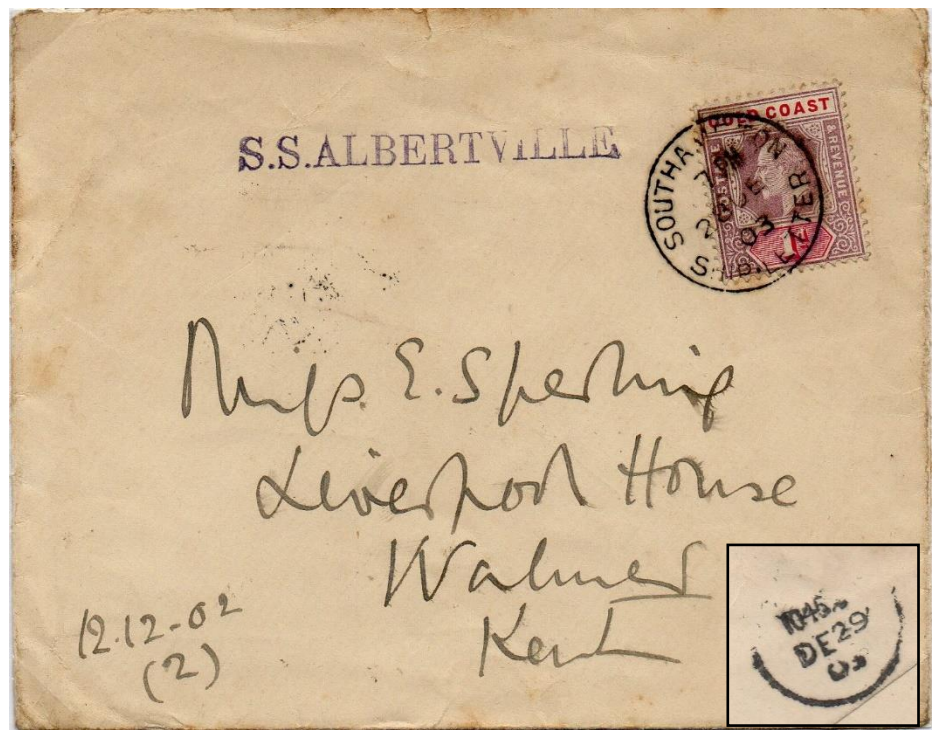 S.S.ALBERTVILLE
GOLD COAST
POSTAGE & REVENUE
1D
SOUTHAMPTON
DE
03
SHIP LETTER
Miss. E. Sperling
Liverpool House
Walmer
Kent
12.12-02
(2)
1045
DE 29
03